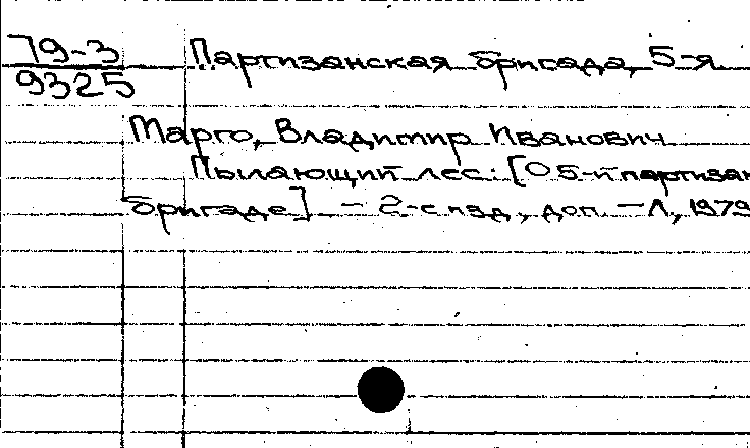 79-3
9325
Партизанская бригада, 5-я.
Марго, Владимир Иванович
Пылающий лес: [О 5-й партизан
бригаде] - 2-е изд., доп. - Л., 1979